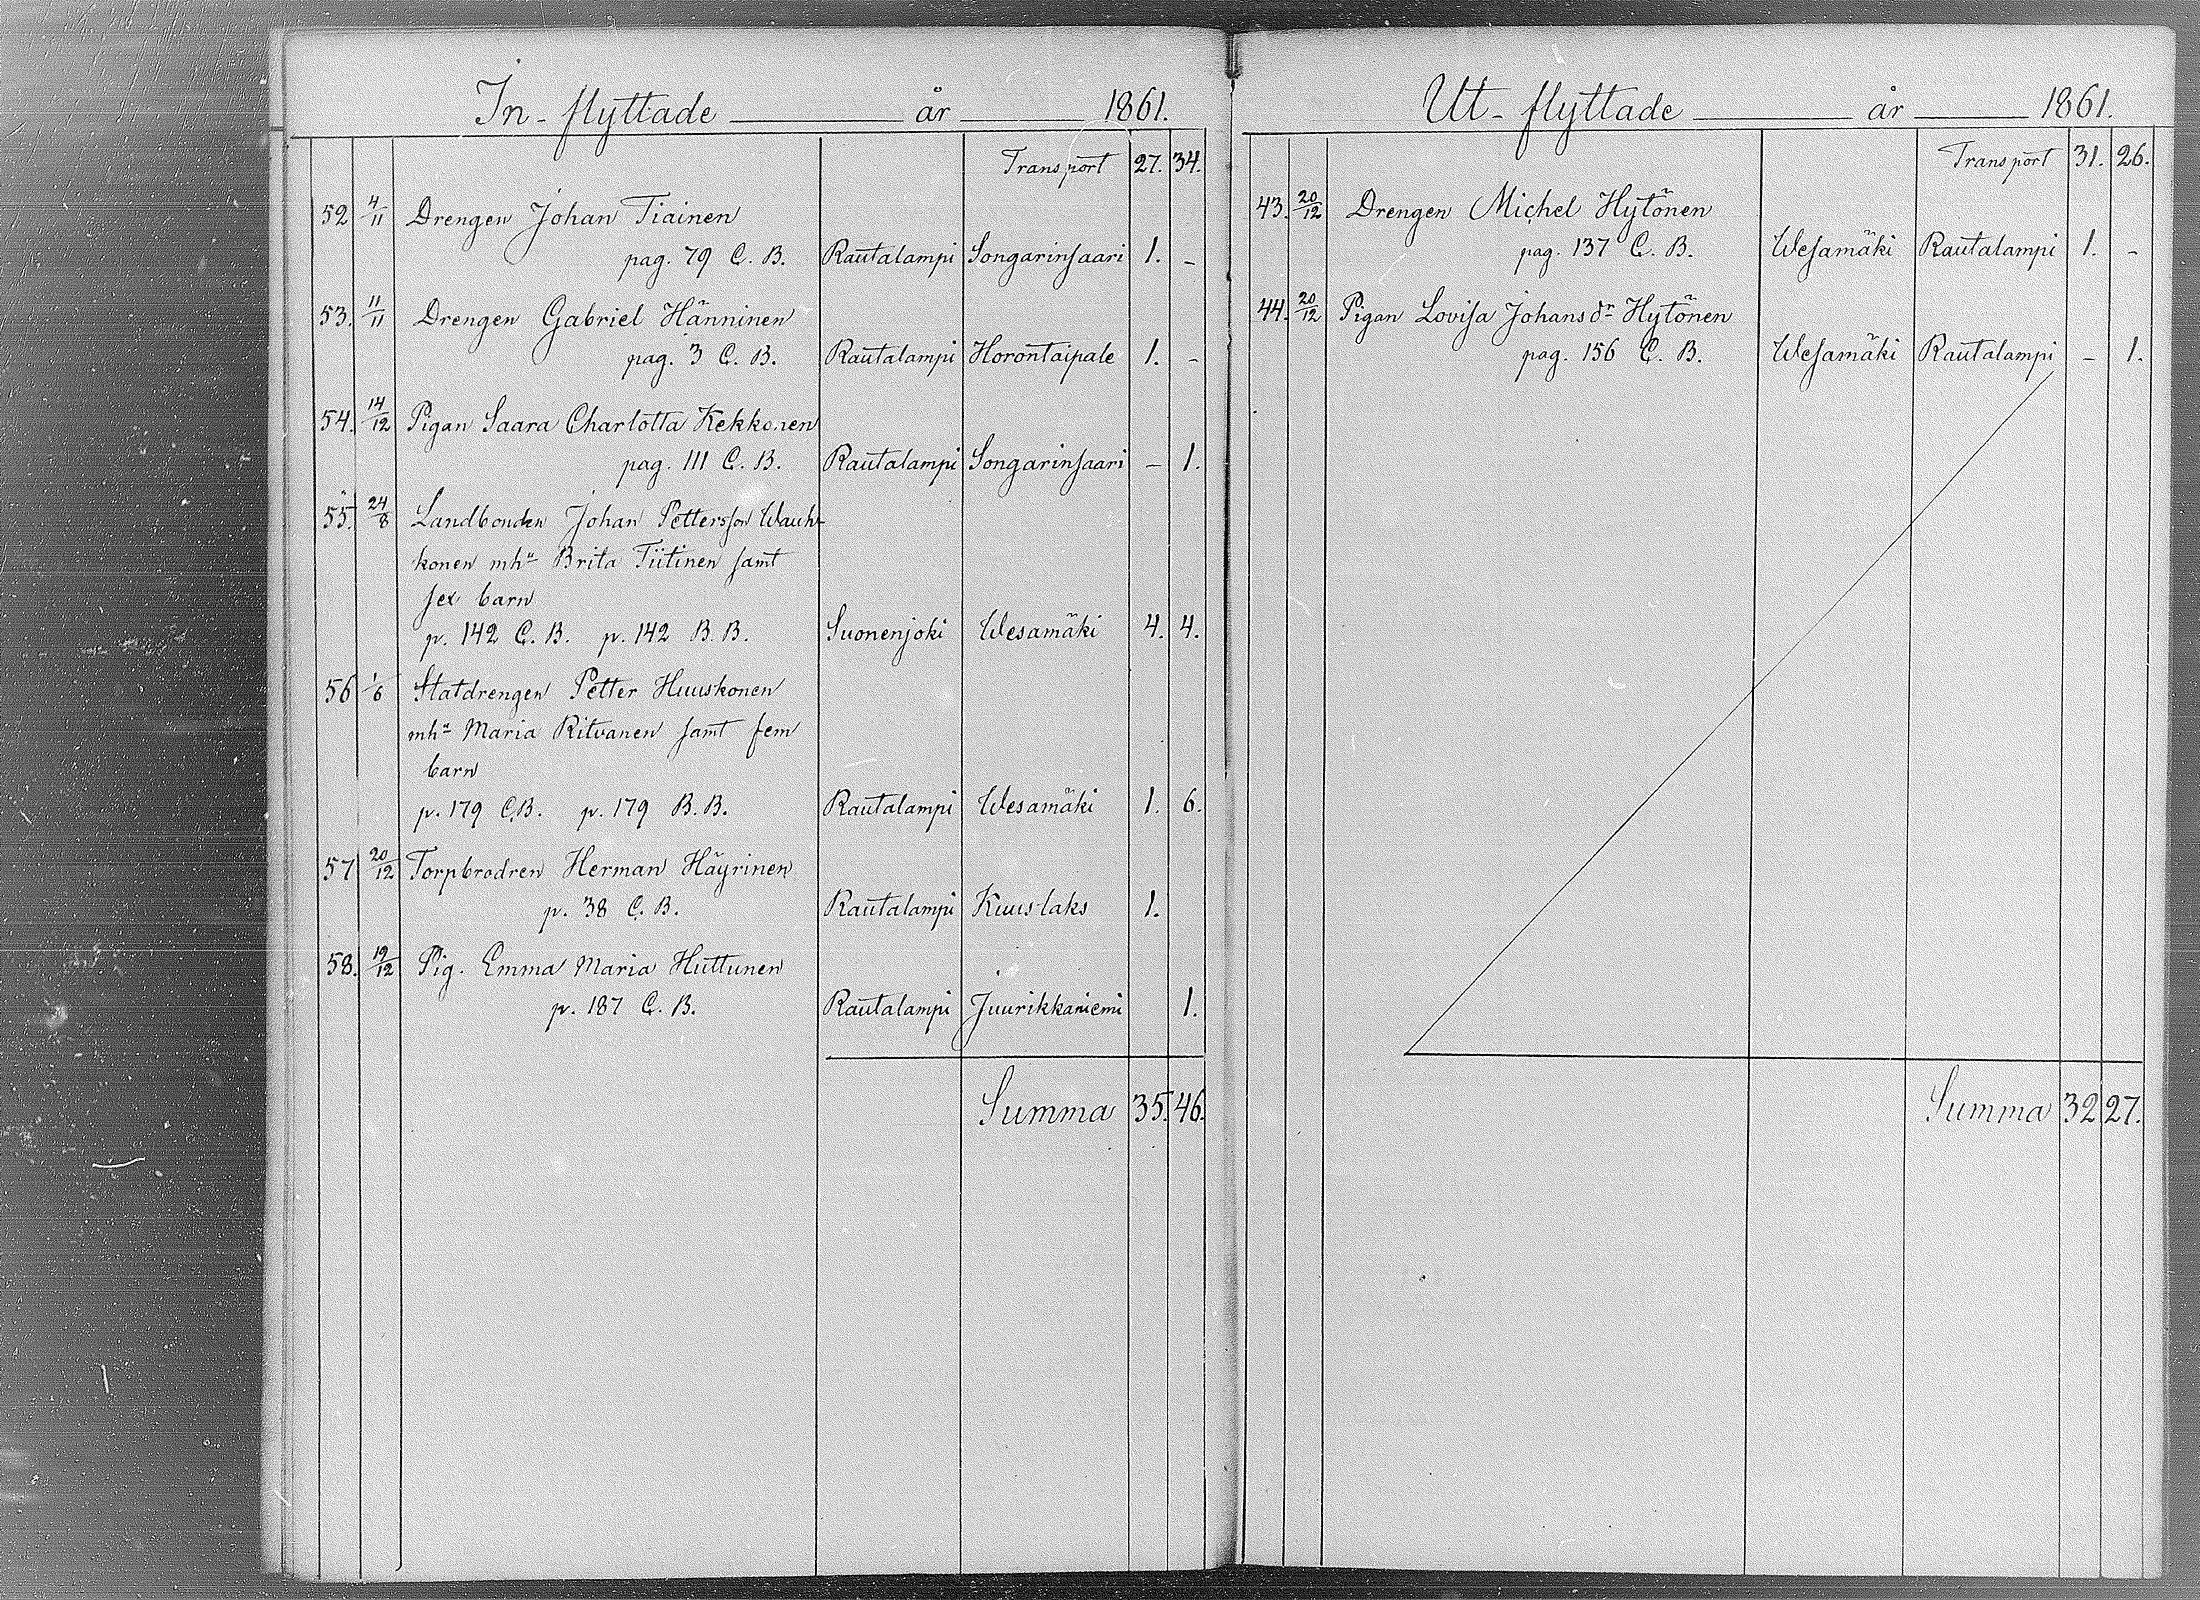 In-flyttade år 1861.
Transport 27. 34.
52 4/11 Drengen Johan Tiainen
pag. 79 C. B. Rautalampi Songarinsaari 1. -
53. 11/11 Drengen Gabriel Hänninen
pag. 3 C. B. Rautalampi Horontaipale 1. -
54. 14/12 Pigan Saara Charlotta Kekkonen
pag. 111 C. B. Rautalampi Songarinsaari - 1.
55. 24/8 Landbonden Johan Pettersson Wauh-
konen mhu Brita Tiitinen samt
sex barn
p. 142 C. B. p. 142 B. B. Suonenjoki Wesamäki 4. 4.
56 1/6 Statdrengen Petter Huuskonen
mhu Maria Ritvanen samt fem
barn
p. 179 C.B. p. 179 B. B. Rautalampi Wesamäki 1. 6.
57 20/12 Torpbrodren Herman Häyrinen
p. 38 C. B. Rautalampi Kuuslaks 1.
58. 19/12 Pig. Emma Maria Huttunen
p. 187 C. B. Rautalampi Juurikkaniemi 1.
Summa 35. 46.
Ut-flyttade år 1861.
Transport 31. 26.
43. 20/12 Drengen Michel Hytönen
pag. 137 C. B. Wesamäki Rautalampi 1. -
44. 20/12 Pigan Lovisa Johansdr Hytönen
pag. 156 C. B. Wesamäki Rautalampi - 1.
Summa 32 27.